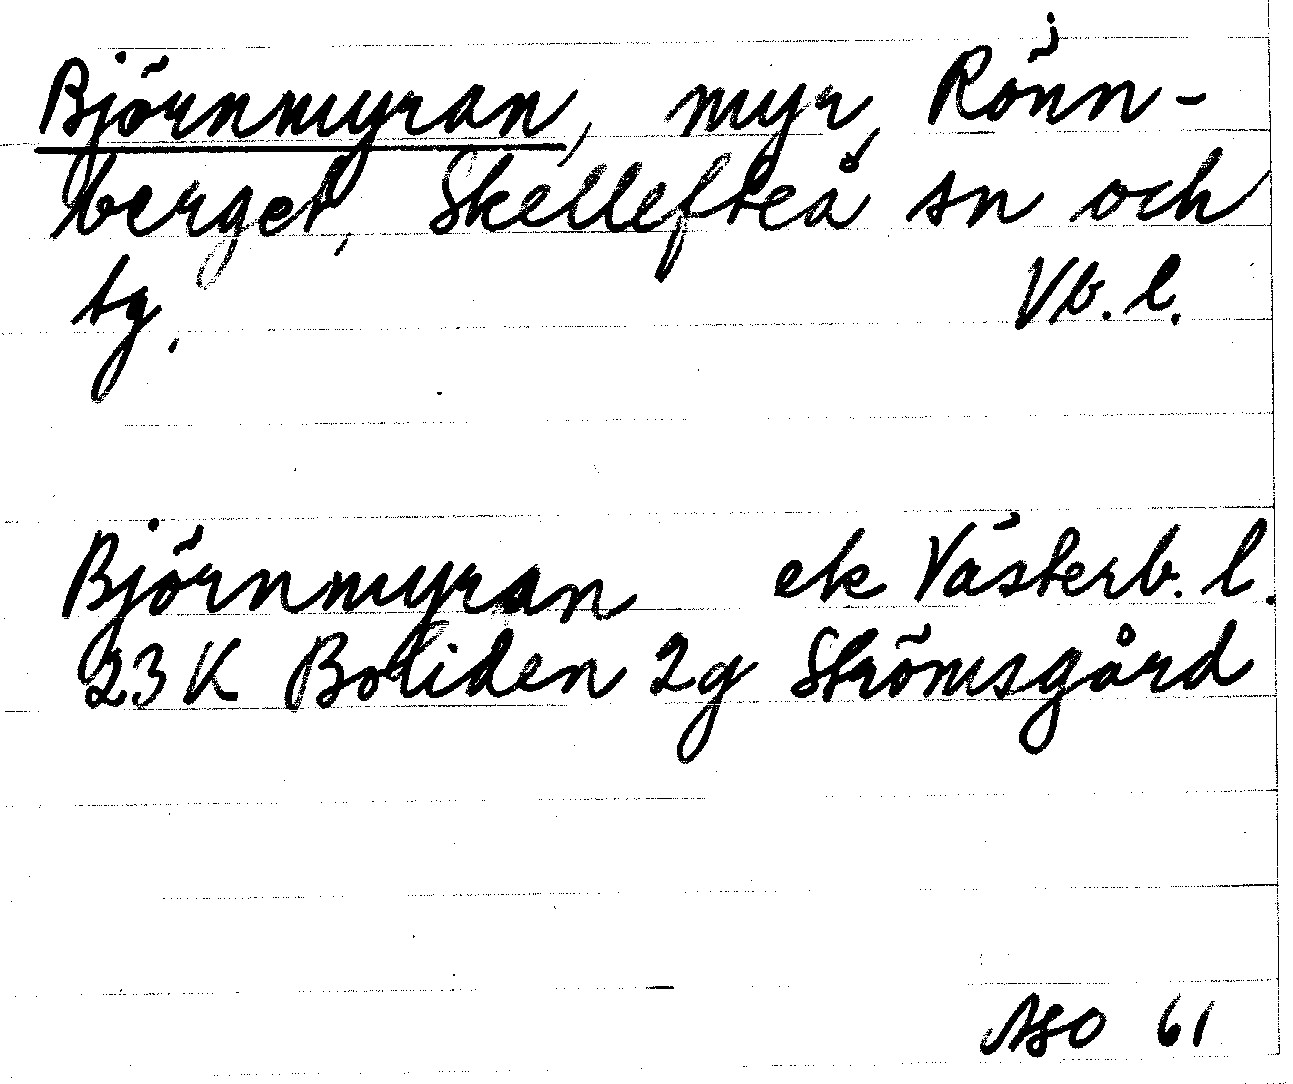 Björnmyran, myr, Rönn-
berget, Skellefteå sn och
tg. Vb. l.
Björnmyran ek Västerb. l.
23 K Boliden 2g Strömsgård
ASO 61